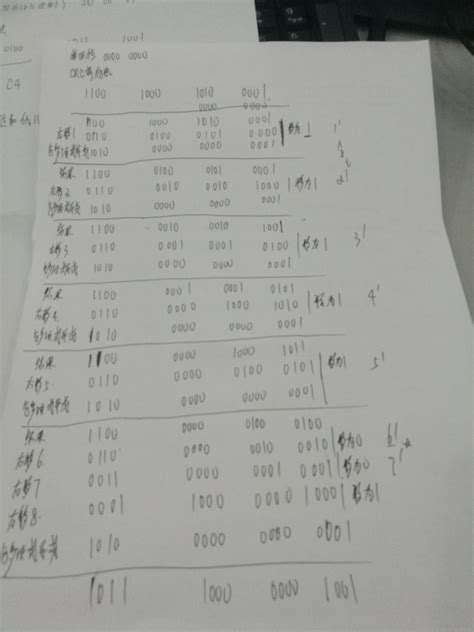 0100
C4
0000 0000
CRC
1100 1000 1010 0001
0000 0000
1100 1000 1010 0001
右移1 0110 0100 0101 0000 移为1 1'
与多项式异或 1010 0000 0000 0001
结果 1100 0100 0101 0001
右移2 0110 0010 0010 1000 移为1 2'
与多项式异或 1010 0000 0000 0001
结果 1100 0010 0010 1001
右移3 0110 0001 0001 0100 移为1 3'
与多项式异或 1010 0000 0000 0001
结果 1100 0001 0001 0101
右移4 0110 0000 1000 1010 移为1 4'
与多项式异或 1010 0000 0000 0001
结果 1100 0000 1000 1011
右移5 0110 0000 0100 0101 移为1 5'
与多项式异或 1010 0000 0000 0001
结果 1100 0000 0100 0100
右移6 0110 0000 0010 0010 移为0 6'
右移7 0011 0000 0001 0001 移为0 7'
右移8 0001 1000 0000 1000 移为1
与多项式异或 1010 0000 0000 0001
1011 1000 0000 1001